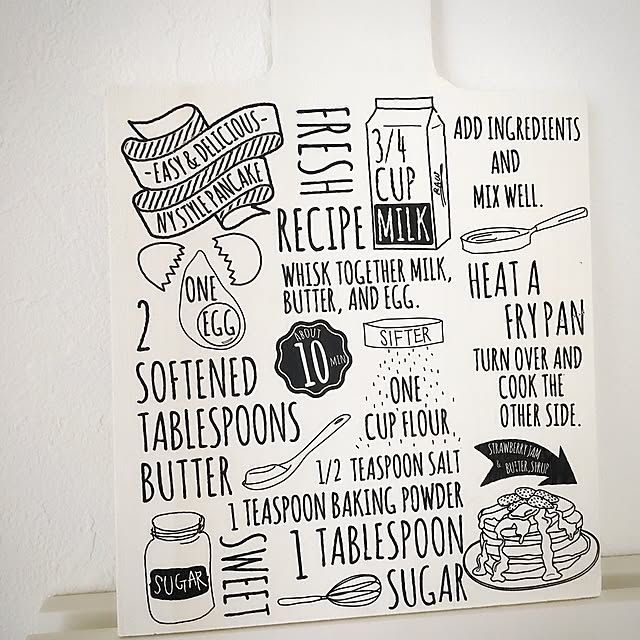 -EASY & DELICIOUS-
NY STYLE PANCAKE
FRESH
RECIPE
3/4
CUP
MILK
RAW
ADD INGREDIENTS
AND
MIX WELL.
WHISK TOGETHER MILK,
BUTTER, AND EGG.
HEAT A
FRY PAN
TURN OVER AND
COOK THE
OTHER SIDE.
ONE
EGG
2
SOFTENED
TABLESPOONS
BUTTER
ABOUT
10 MIN
SIFTER
ONE
CUP FLOUR
1/2 TEASPOON SALT
1 TEASPOON BAKING POWDER
1 TABLESPOON
SUGAR
SWEET
SUGAR
STRAWBERRY JAM
& BUTTER, SIRUP